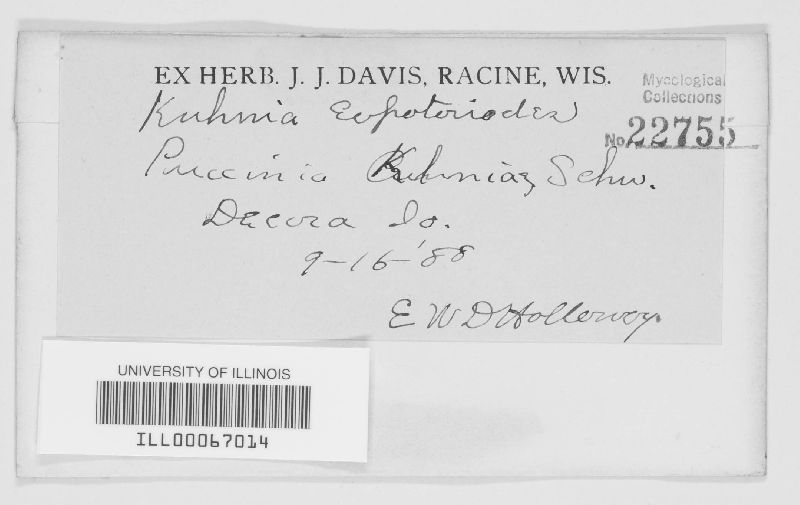 EX HERB. J. J. DAVIS, RACINE, WIS.
Mycological
Collections
No. 22755
Kuhnia Eupatoriodes
Puccinia Kuhniae, Schw.
Decora Io.
9-16-'88
E W D Holloway.
UNIVERSITY OF ILLINOIS
ILL00067014